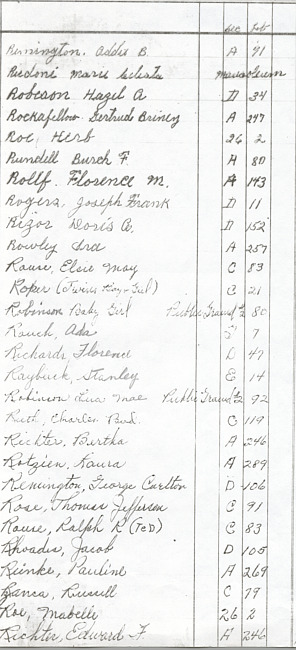 Sec Lot
Remington. Addie B. A 91
Riedoni Marie Celeste Mausoleum
Roberson Hazel A D 34
Rockafellow Gertrude Briney A 247
Roe, Herb 26 2
Rundell Burch F. A 80
Rollf. Florence M. A 143
Rogers, Joseph Frank D 11
Rizor Doris A. D 152
Rowley Ira A 257
Rouse, Elsie May C 83
Roper (Twins Boy-Girl) C 21
Robinson Baby Girl Public Ground 2 80
Rauch, Ada 7
Richards, Florence D 47
Raybuck, Stanley E 14
Robinson Mae Public Ground 2 92
Ruth, Charles Bud. C 119
Richter, Bertha A 246
Rotzien, Laura A 289
Remington, George Carlton D 106
Rose, Thomas Jefferson C 91
Rouse, Ralph R (TcD) C 83
Rhoades, Jacob D 105
Reinke, Pauline A 269
Ranca, Russell C 79
Roe, Mabelle 26 2
Richter, Edward F. A 246